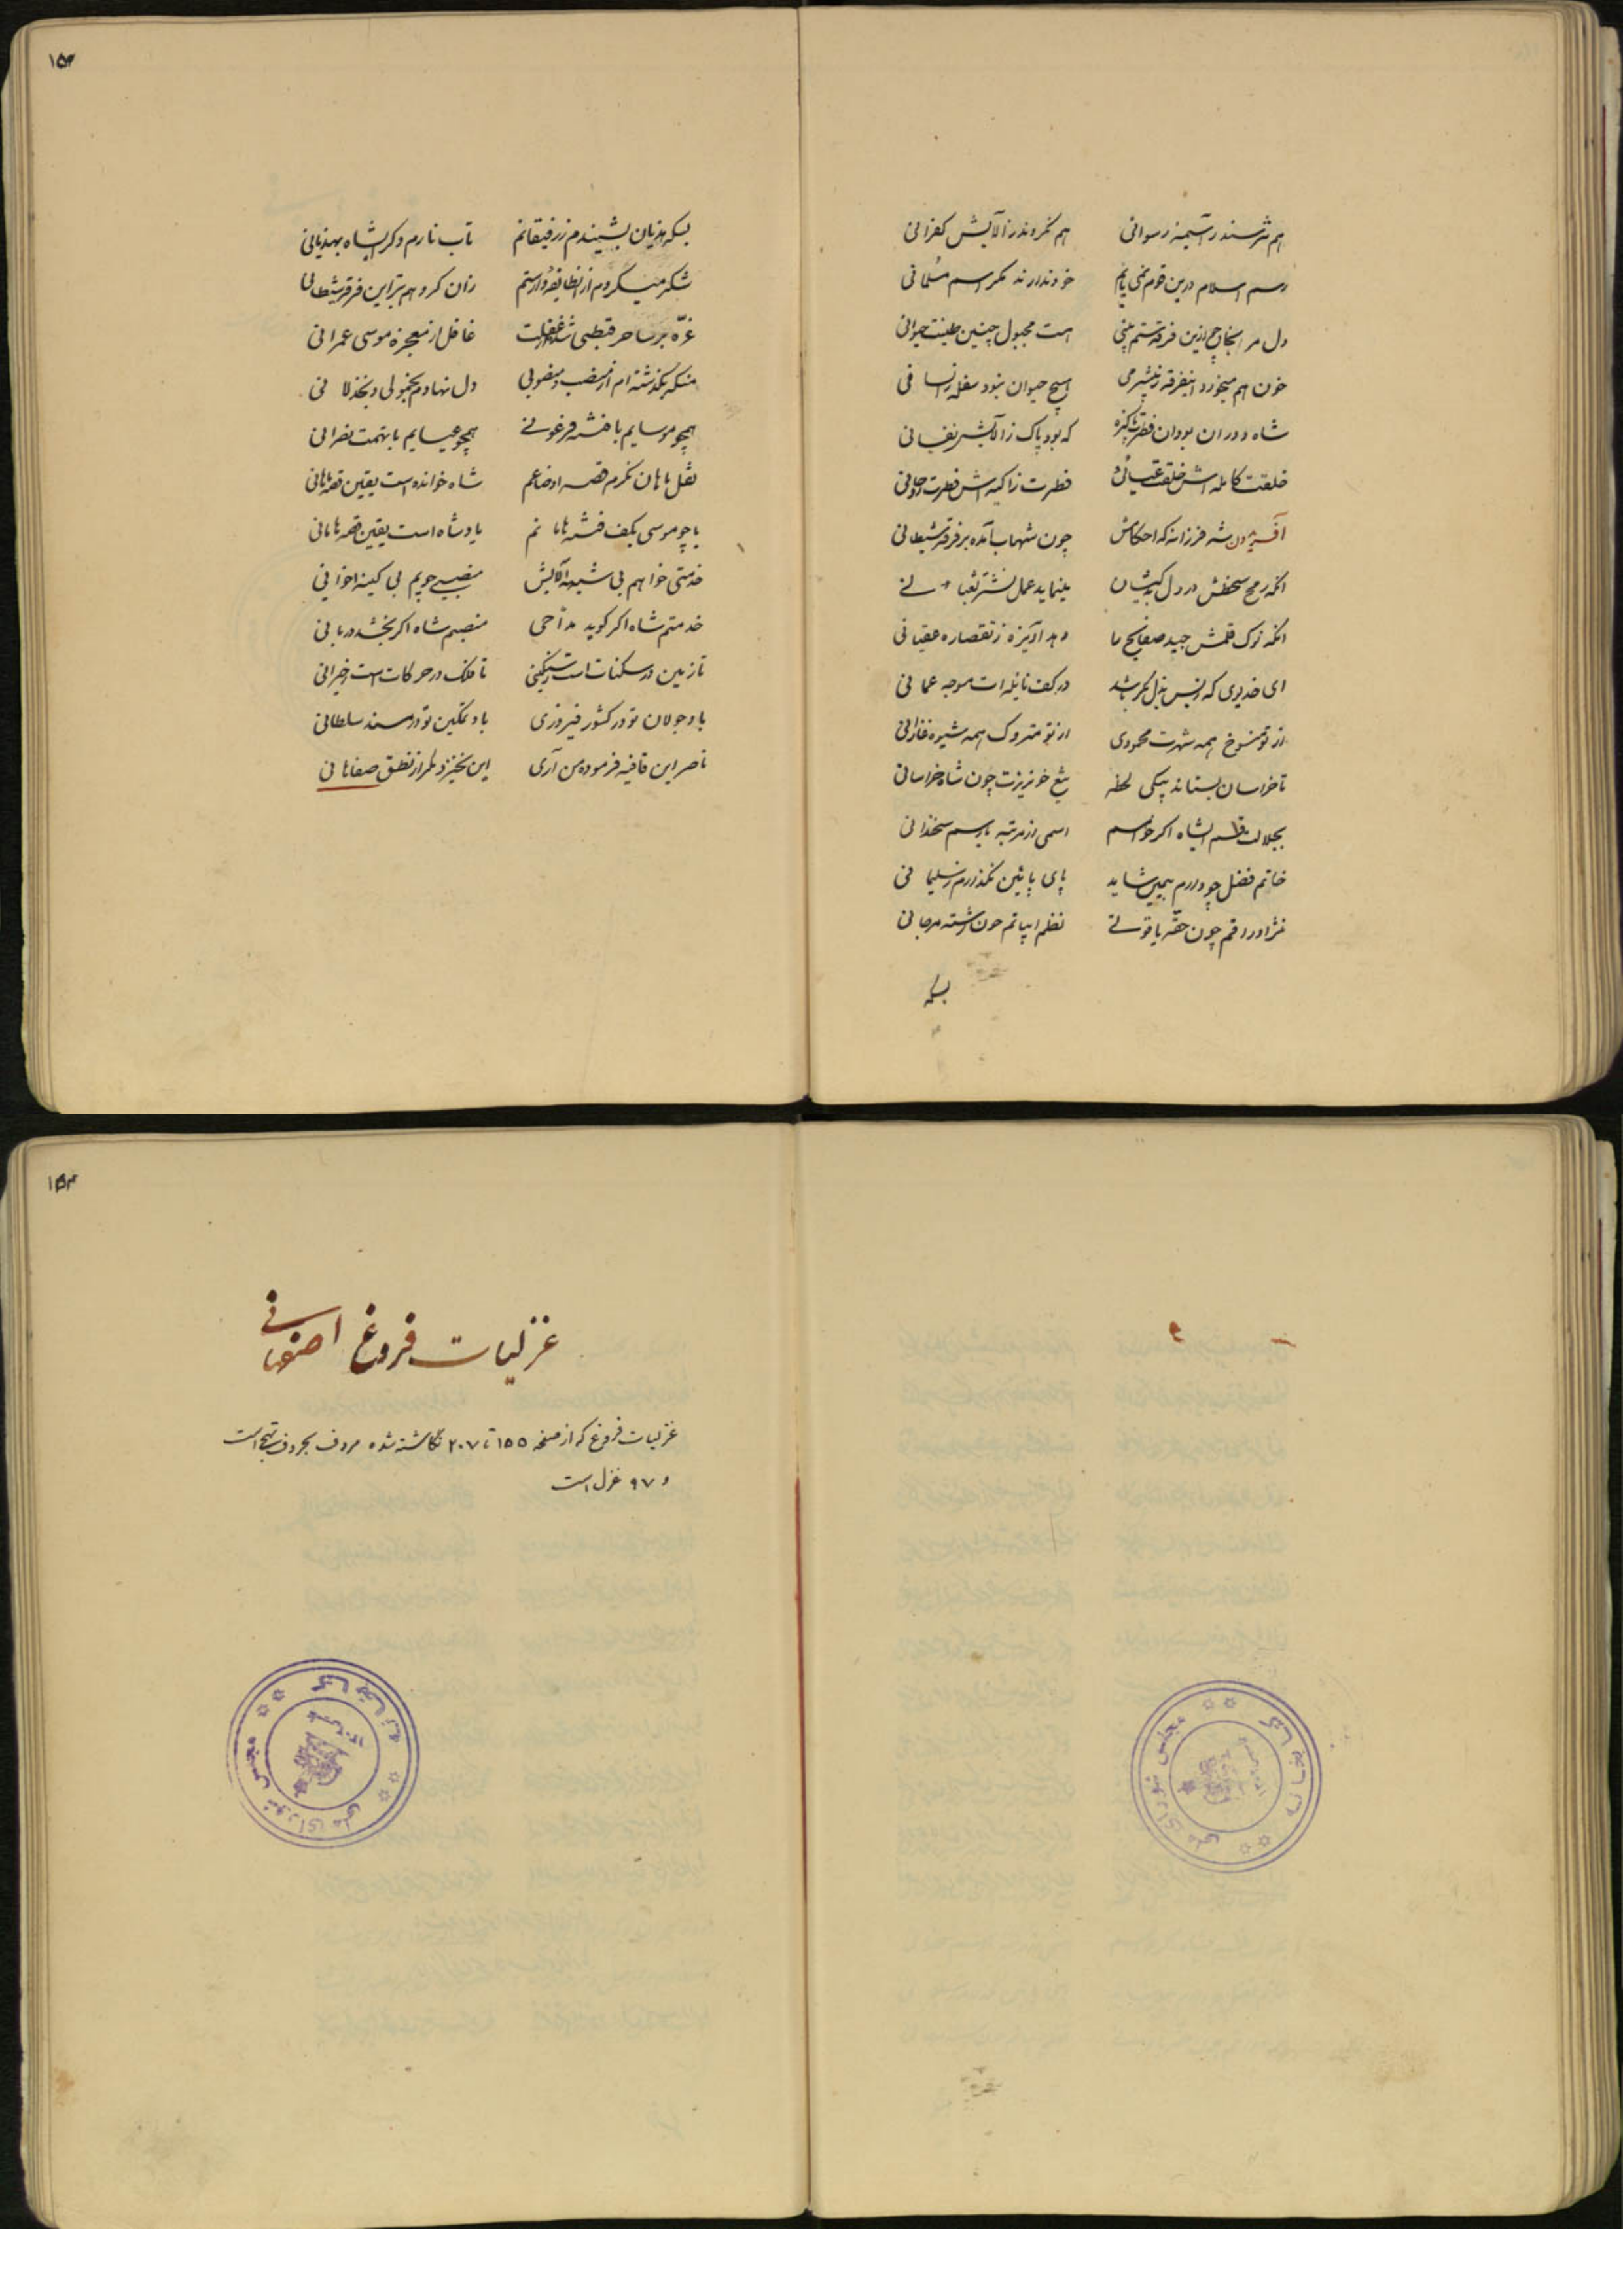 هم نترسند ز آسیمهٔ رسوانی هم نکروندر ز آلایش کفرانی
رسم اسلام درین قوم نمی یابم خود ندارند مگر اسم مسلمانی
دل مر نجان ازین فرقه ستم بینی هست مجبول چنین طینت حیوانی
خون هم میخورد اینفرقه ز بیشرمی هیچ حیوان نبود سفله ز انسانی
شاه دوران بودان فطرت پاکیزه که بود پاک ز آلایش نفسانی
خلقت کامله اش خلقت فطرت زاکیه اش فطرت روحانی
شه فرزانه که احکامش چون شهاب آمده بر فرقه شیطانی
انکه رمح سخطش در دل مینماید عمل نشتر
انکه نوک قلمش جید صفایح را دهد آویزه ز تقصاره عقیانی
ای خدیوی که در کف نایله ات موجه عمانی
از تو منسوخ همه شهرت محمودی از تو متروک همه شیوه غازانی
تا خراسان بستاند بیکی لحظه تیغ خونریزت چون شاه خراسانی
بجلالت قسم ایشاه اگر خواهم اسمی از مرتبه یا رسم سخندانی
خاتم فضل چو دارم بیمین شاید پای پایین نگذارم ز سلیمانی
نثر او در رقم چون حقه یاقوتی نظم ابیاتم چون رشته مرجانی
بسکه
۱۵۳
بسکه هذیان بشنیدم ز رفیقانم تاب نارم دگر ایشاه بهذیانی
شکر میگردم از زان گروهم بتر این فرقه شیطانی
غره بر ساحر قبطی غافل از معجزه موسی عمرانی
منکه بگذشته ام از منصب و منصوبی دل نهادم بخمولی و بخذلانی
همچو موسایم با فتنه فرعونی همچو عیسایم با تهمت نصرانی
نقل هامان نکرم قصه اوضاعم شاه خوانده است یقین قصه هامانی
یا چو موسی بکف فتنه هامانم یاد شاه است یقین قصه هامانی
خدمتی خواهم بی شیبه آلایش منصبی جویم بی کینه اخوانی
خدمتم شاه اگر گوید مداحی منصبم شاه اگر بخشد دربانی
تا زمین در سکنات است ز تا فلک در حرکات است ز حیرانی
باد جولان تو در کشور فیروزی باد تمکین تو در مسند سلطانی
ناصر این قافیه فرموده من آری این نخیزد مگر از نطق صفاهانی
۱۵۴
غزلیات فروغ اصفهانی
غزلیات فروغ که از صفحه ۱۵۵ تا ۲۰۷ نگاشته شده مردف بحروف تهجی است
و ۹۷ غزل است
کتابخانه مجلس شورای ملی
کتابخانه مجلس شورای ملی